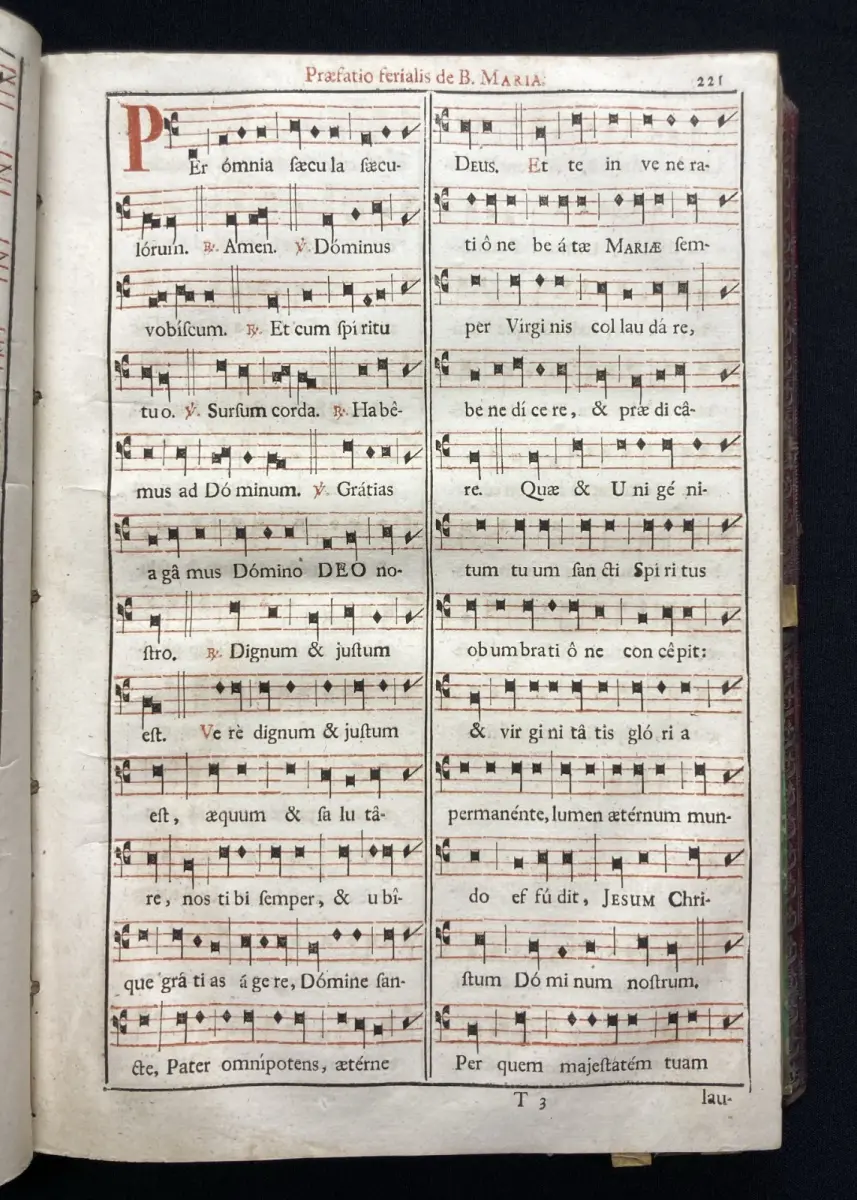 Præfatio ferialis de B. MARIA.
221
PEr ómnia ſæcu la ſæcu-
lórum. ℟. Amen. ℣. Dóminus
vobiſcum. ℟. Et cum ſpi ritu
tu o. ℣. Surſum corda. ℟. Ha bê-
mus ad Dó minum. ℣. Grátias
a gâ mus Dómino DEO no-
ſtro. ℟. Dignum & juſtum
eſt. Ve rè dignum & juſtum
eſt, æquum & ſa lu tâ-
re, nos ti bi ſemper, & u bî-
que grâ ti as á ge re, Dómine ſan-
cte, Pater omnípotens, ætérne
DEUS. Et te in ve ne ra-
ti ô ne be á tæ MARIÆ ſem-
per Virgi nis col lau dá re,
be ne dí ce re, & præ di câ-
re. Quæ & U ni gé ni-
tum tu um ſan cti Spi ri tus
ob um bra ti ô ne con cêpit:
& vir gi ni tâ tis gló ri a
permanénte, lumen ætérnum mun-
do ef fú dit, JESUM Chri-
ſtum Dó mi num noſtrum.
Per quem majeſtátém tuam
T 3
lau-